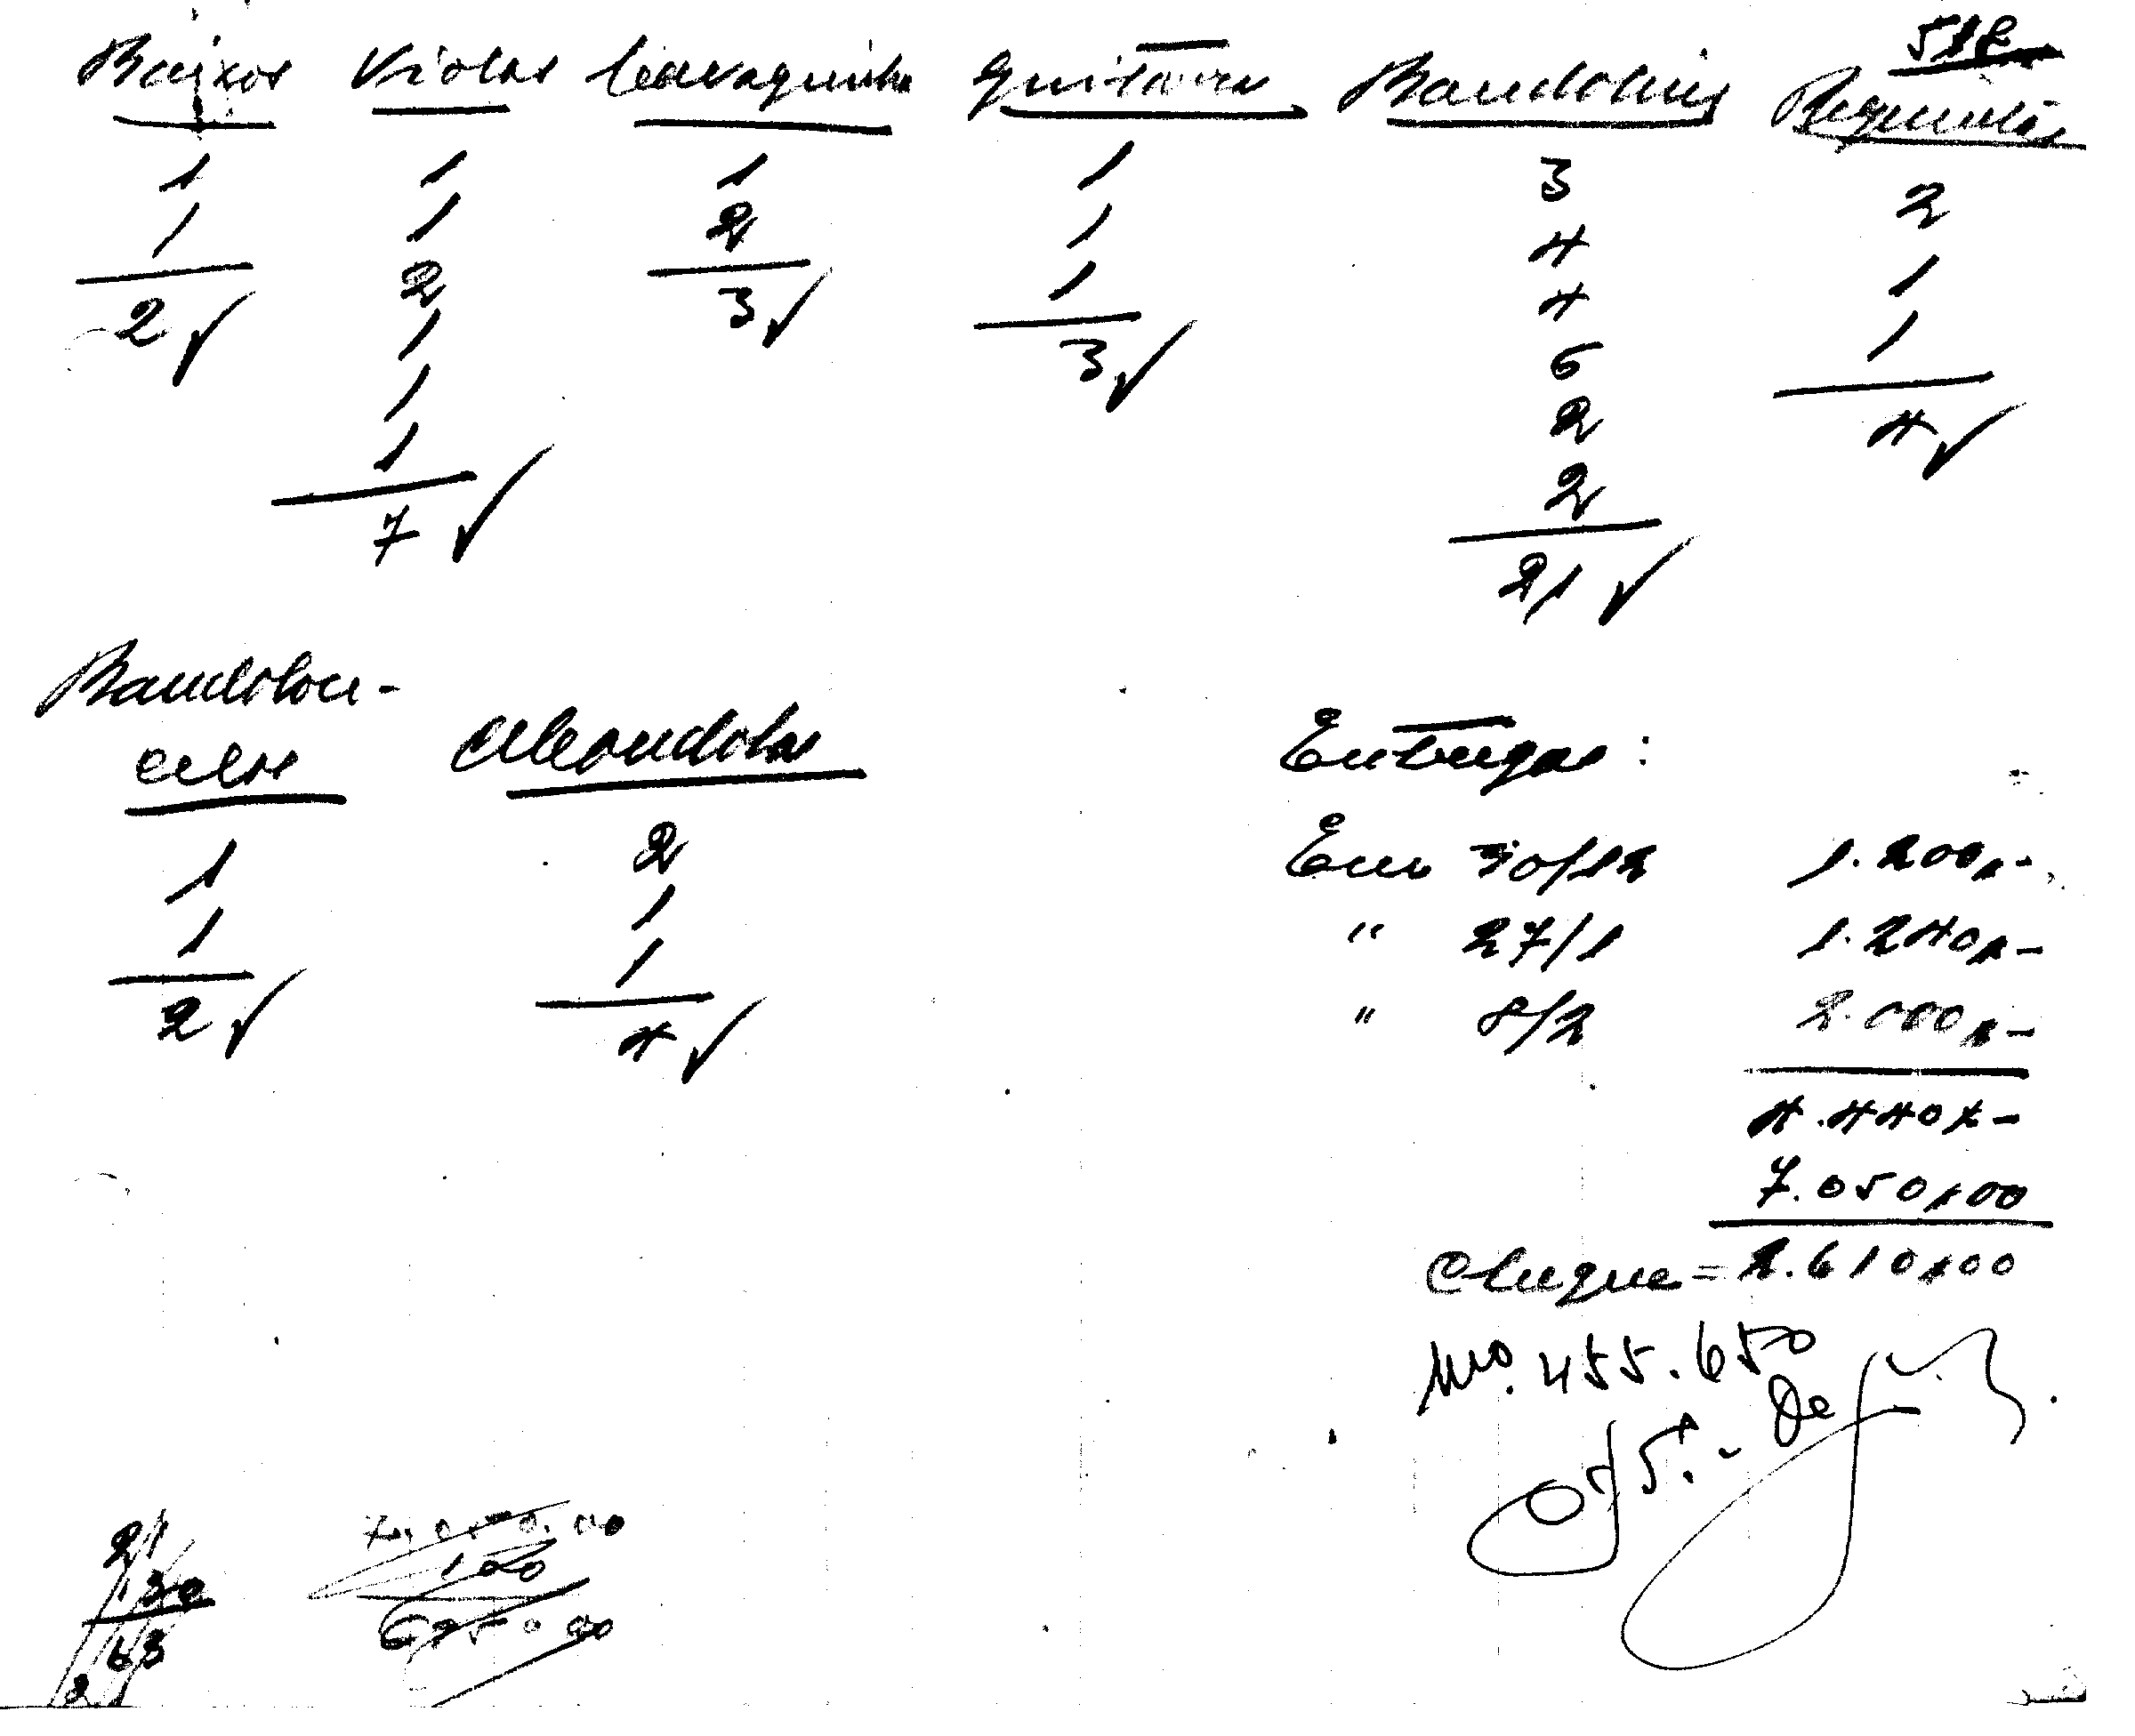 518
Baixos Violas Cavaquinho Guitarra Bandolins Requintas
1 1 1 1 3 2
1 1 2 1 4 1
2 2 3 1 4 1
1 3 6 4
1 2
1 2
7 21
Bandolon-
celos Mandolas
1 2
1 1
2 1
4
Entregas:
Em 30/12 1.200,-
" 27/1 1.240,-
" 8/2 2.000,-
4.440,-
7.050,00
Cheque = 2.610,00
no. 455.650
21
130
63
21
7.050.00
100
6950 00